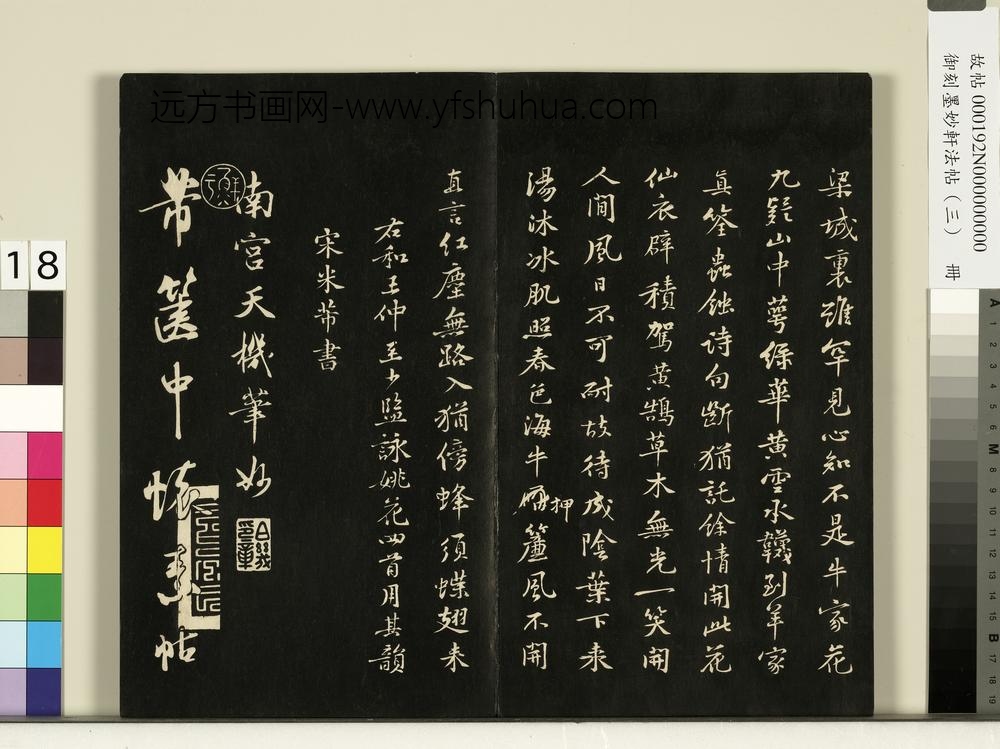 远方书画网-www.yfshuhua.com
故帖 000192N000000000
御刻墨妙軒法帖(三) 冊
梁城裏雖罕見心知不是牛家花
九疑山中萼綠華黃雲承襪到羊家
真筌蟲蝕詩句斷猶託餘情開此花
仙衣襞積駕黃鵠草木無光一笑開
人間風日不可耐故待成陰葉下來
湯沐冰肌照春色海牛押簾風不開
直言紅塵無路入猶傍蜂須蝶翅來
右和王仲至少監詠姚花四首用其韻
宋米芾書
南宮天機筆妙
芾篋中懷素帖
18
A 1 2 3 4 5 6 M 8 9 10 11 12 13 14 15 B 17 18 19